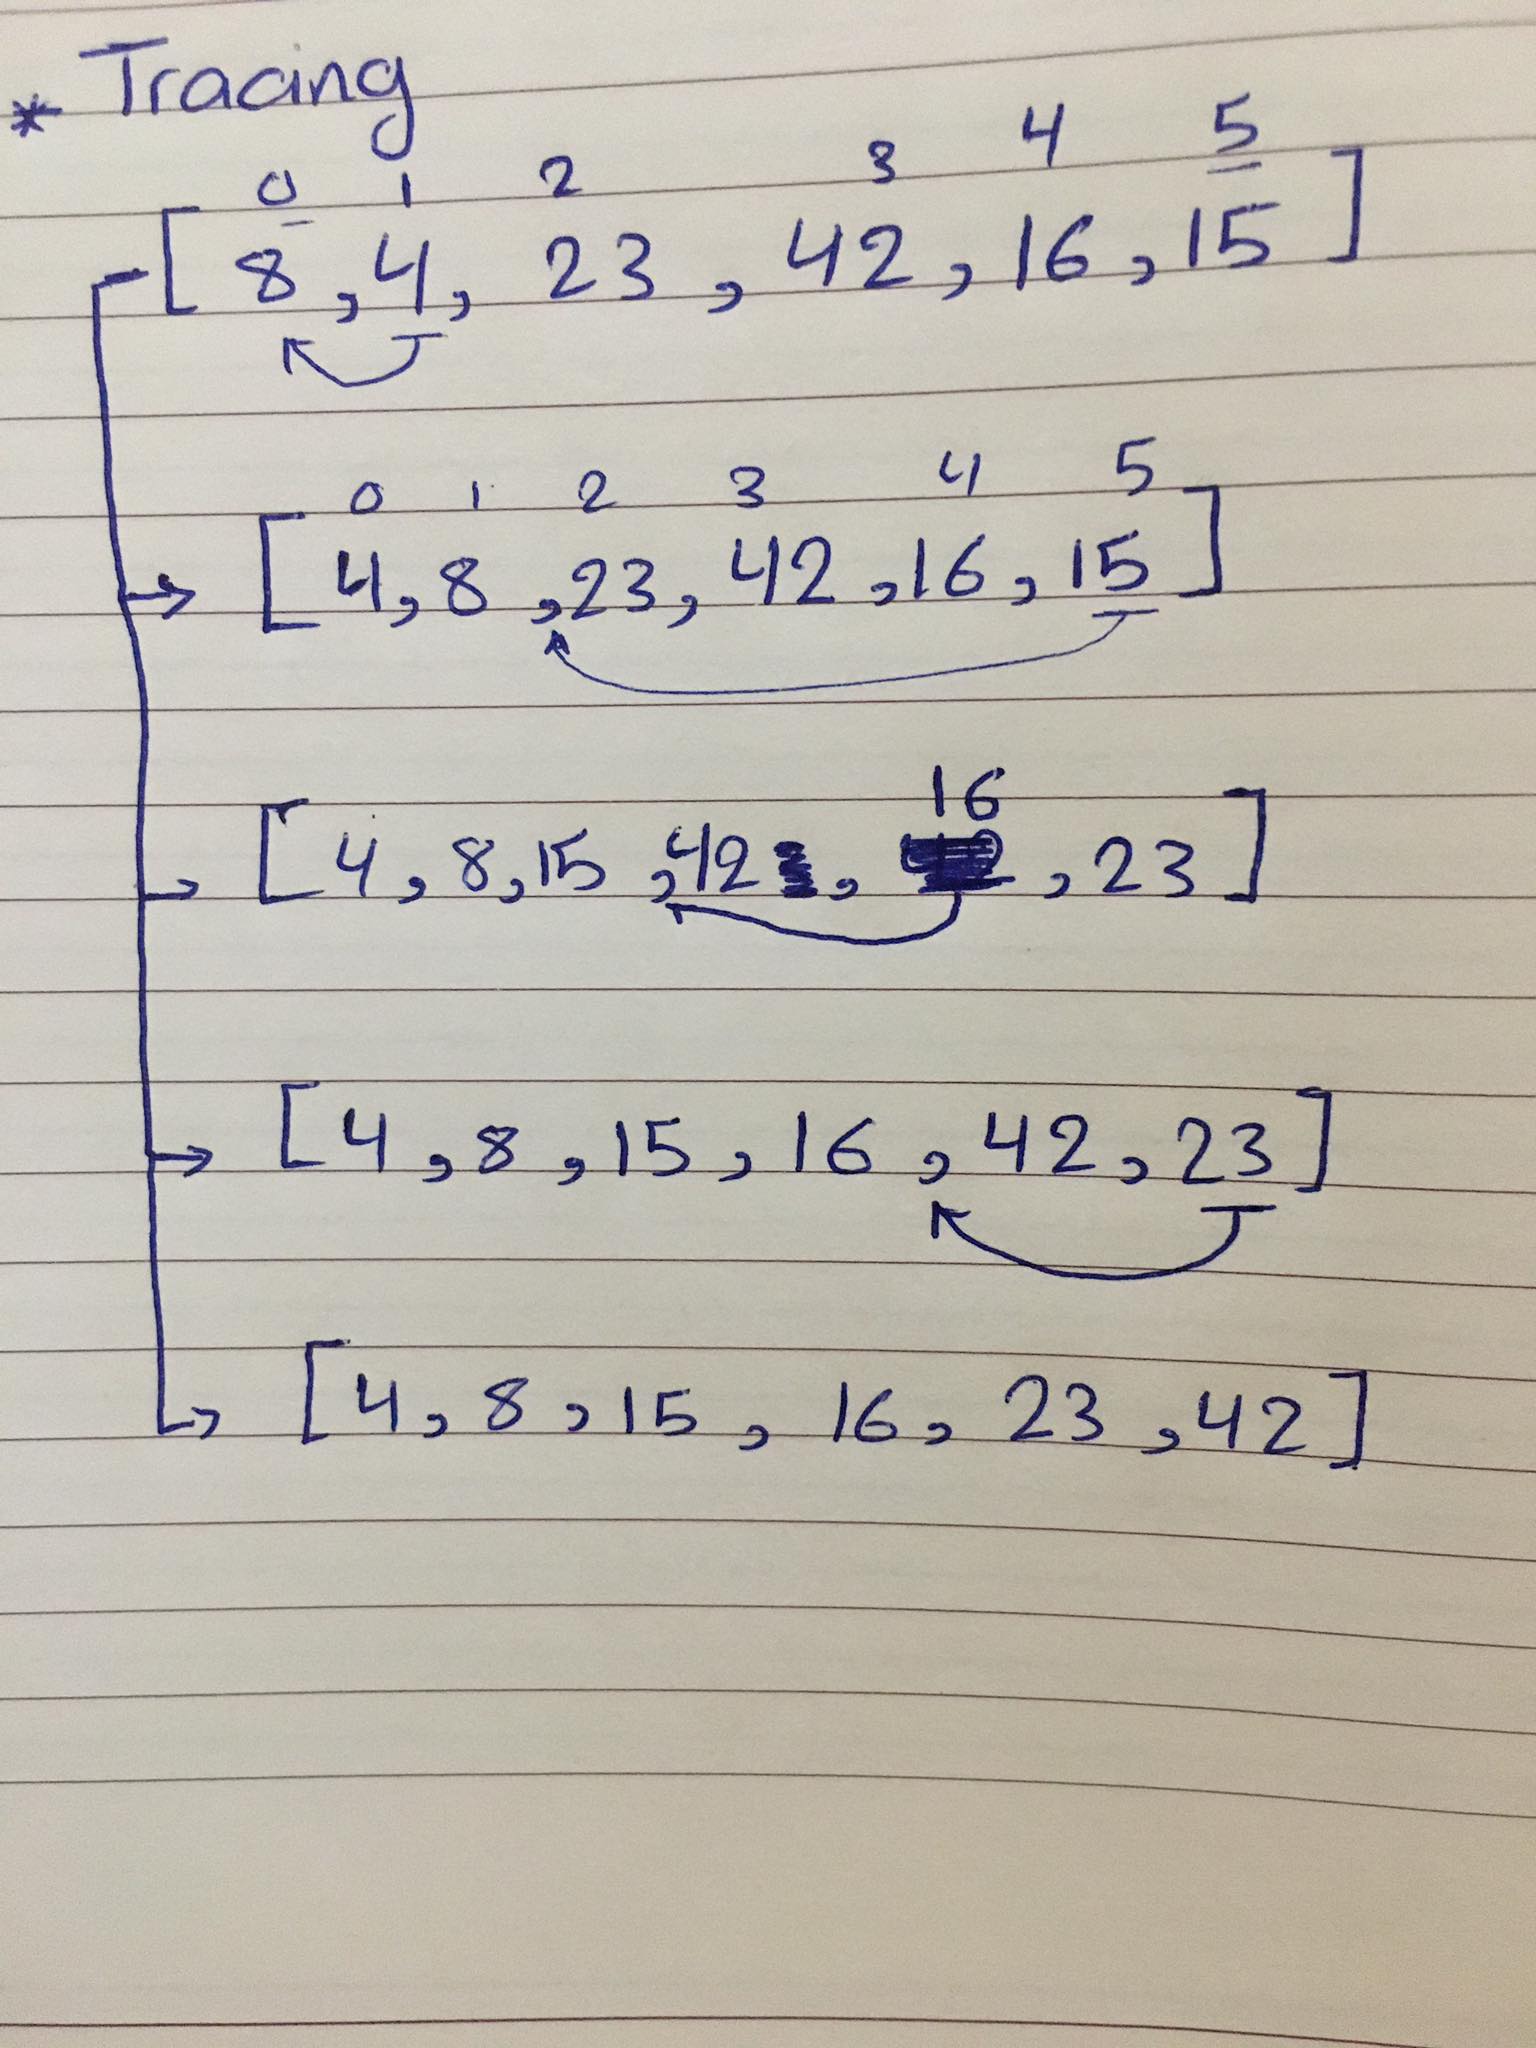 * Tracing
0 1 2 3 4 5
[ 8 , 4 , 23 , 42 , 16 , 15 ]
0 1 2 3 4 5
[ 4 , 8 , 23 , 42 , 16 , 15 ]
16
[ 4 , 8 , 15 , 42 , , 23 ]
[ 4 , 8 , 15 , 16 , 42 , 23 ]
[ 4 , 8 , 15 , 16 , 23 , 42 ]